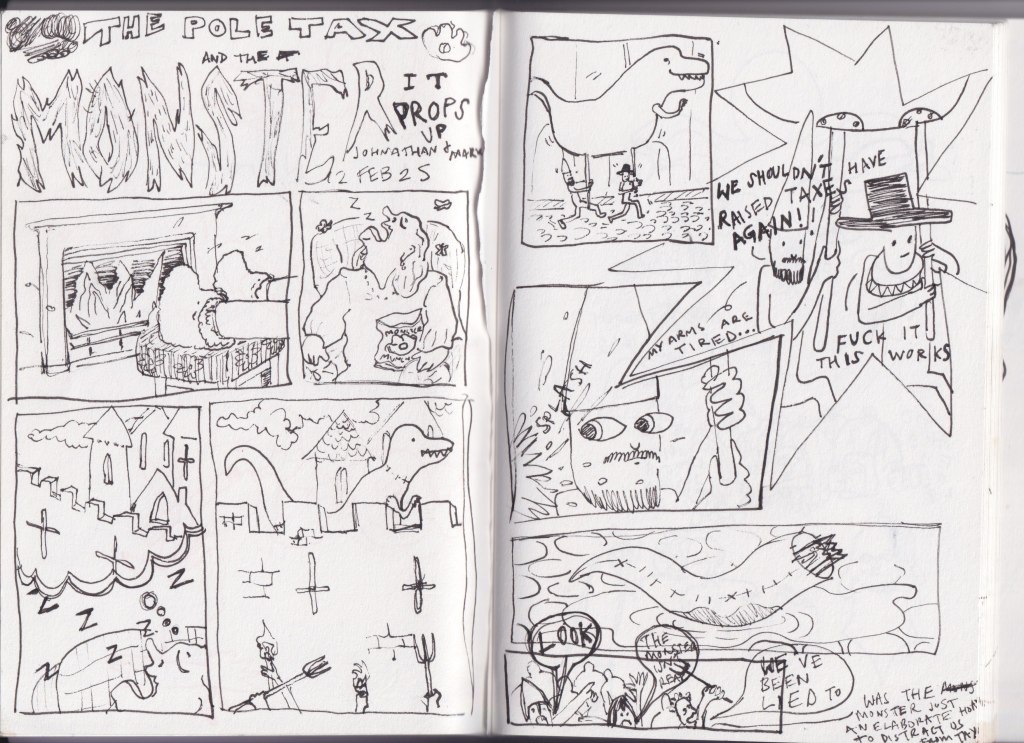 THE POLE TAX
AND THE
MONSTER
IT
PROPS
UP
JOHNATHAN & MARK
12 FEB 25
Z Z
MONSTER
MUNCH
Z
Z
Z
Z
Z
Z
WE SHOULDN'T HAVE
RAISED TAXES
AGAIN!!
FUCK IT
THIS WORKS
MY ARMS ARE
TIRED...
SPLASH
LOOK
THE
MONSTER
WAS
REAL
WE'VE
BEEN
LIED TO
WAS THE
MONSTER JUST
AN ELABORATE
TO DISTRACT US
FROM TAX